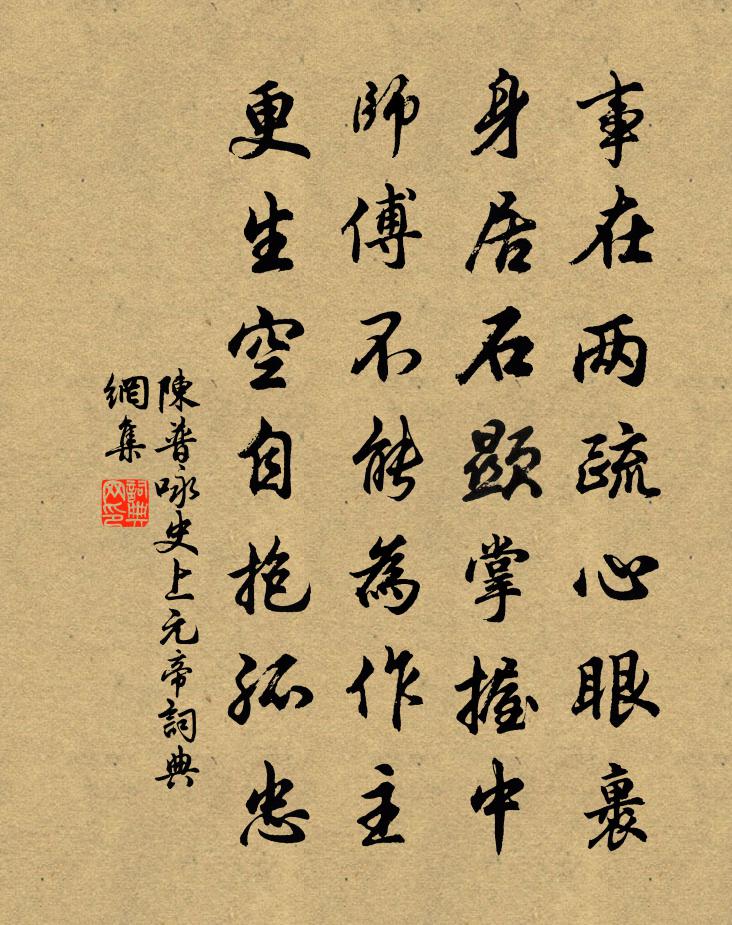 事在两疏心眼裹
身居石顯掌握中
師傅不能為作主
更生空自抱孤忠
陳普咏史上元帝詞典
網集
詞典
网印